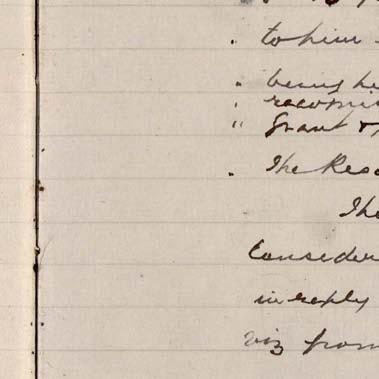 to him
being he
Grant &
The Reso
The
Consider
in reply
viz from